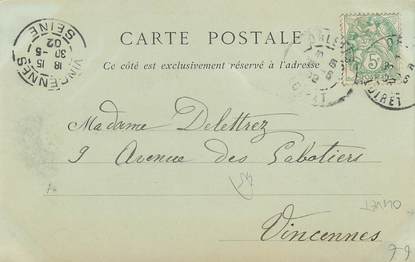 CARTE POSTALE
Ce côté est exclusivement réservé à l'adresse
VINCENNES
18 15
30-5
02
SEINE
5
LOIRET
Madame Delettrez
9 Avenue des Sabotiers
Vincennes
OLIVET